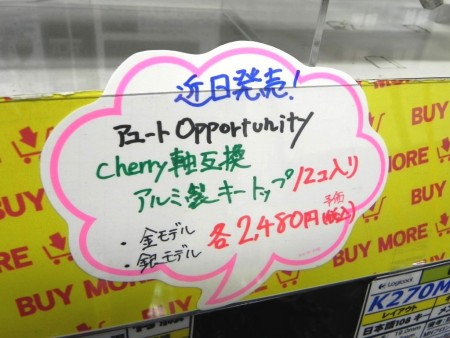 近日発売!
アユート Opportunity
cherry軸互換
アルミ製キートップ 12コ入り
・金モデル
・銀モデル
各2,480円
予価
(税込)
BUY MORE
BUY MORE
BUY MORE
BUY MORE
BUY
Logicool
K270
レイアウト
日本語108キー